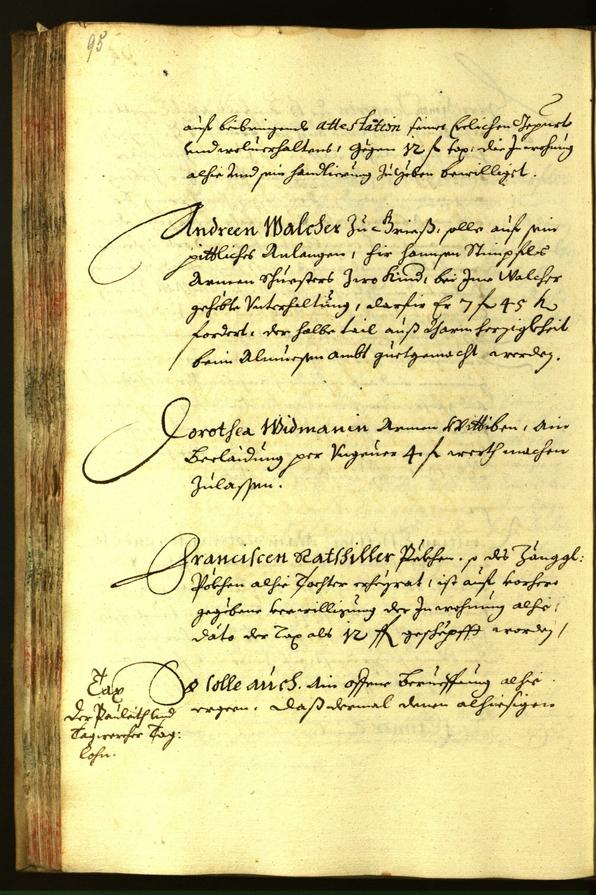 95
auf beibringende attestation seines Ehelichen Gepurts
und wolverhaltens, gegen 12 f Tax, die Inwohnung
alhie und sein handtierung zu treiben bewilliget.
Andreen Walcher Zu Griesß, solle auf sein
pittliches Anlangen, für hannsen Stimpfls
Armen Schuesters Zwo Kind, bei Ime Walcher
gehebte Unterhaltung, darfür Er 7 f 45 k
fordert, der halbe tail auß Parmherzigkheit
beim Almuesen Ambt guetgemacht werden.
Dorothea Widmanin Armen Wittiben, ain
Beclaidung per Ungeuer 4 f werth machen
zulassen.
Franciscen Ratschiller Pekhen, so des Zänggl:
Pekhen alhie Tochter erheyrat, ist auf vorhero
gegebene verwilligung der Inwohnung alhie,
dato der Tax als 12 f geschepfft worden,
Tax
der Pauleith und
Tagwercher Tag:
lohn.
So solle auch. Ain offene Berueffung alhie
ergeen, daß dermal denen alhiesigen